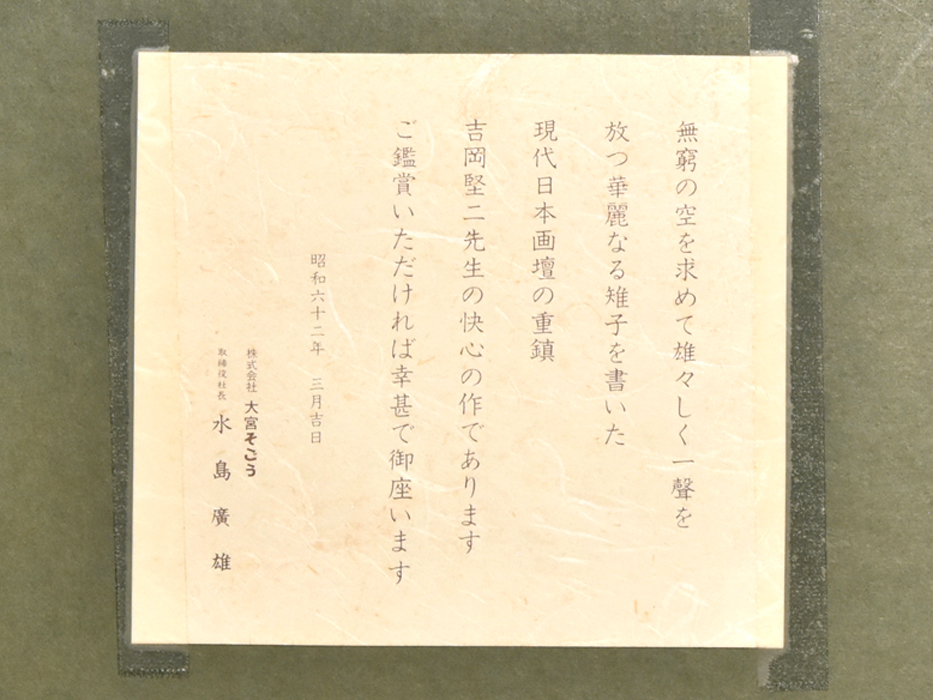 無窮の空を求めて雄々しく一聲を
放つ華麗なる雉子を書いた
現代日本画壇の重鎮
吉岡堅二先生の快心の作であります
ご鑑賞いただければ幸甚で御座います
昭和六十二年 三月吉日
株式会社 大宮そごう
取締役社長 水島廣雄